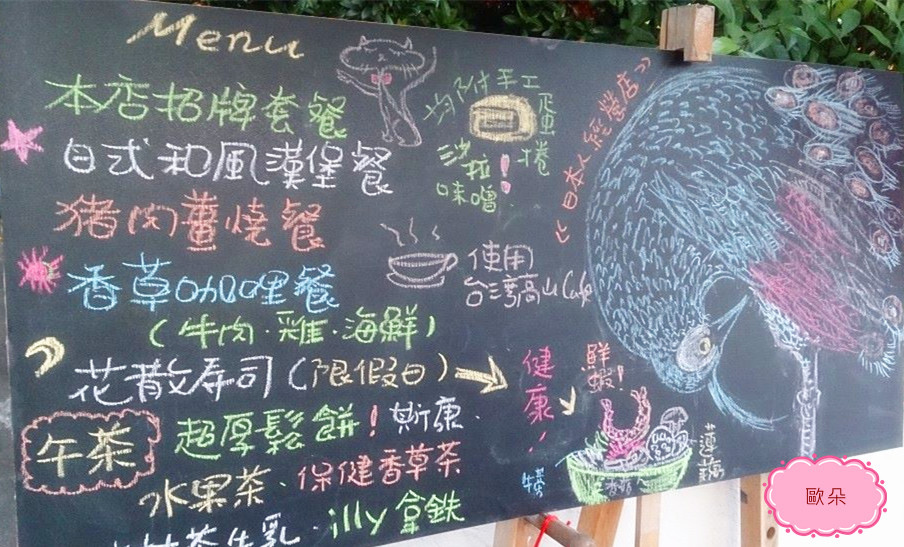 Menu
本店招牌套餐
日式和風漢堡餐
猪肉薑燒餐
香草咖哩餐
(牛肉·雞·海鮮)
花散寿司(限假日)
午茶
超厚鬆餅!斯康.
水果茶.保健香草茶
茶牛乳.illy拿鉄
均附手工
蛋捲
沙拉!
味噌.
使用
台湾高山Cafe
《日本人經營店》
健康!!
鮮蝦!
牛蒡
香菇
蓮藕
歐朵